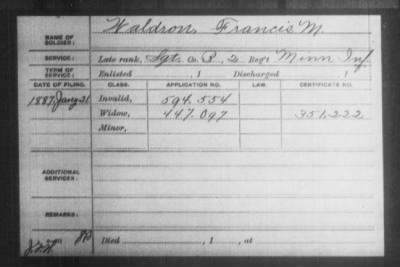 NAME OF SOLDIER: Waldron, Francis M.
SERVICE: Late rank, Sgt. Co. B, 2 Reg't Minn Inf.
TERM OF SERVICE: Enlisted , 1 Discharged , 1
DATE OF FILING. CLASS. APPLICATION NO. LAW. CERTIFICATE NO.
1887 Jany 21 Invalid, 594.554
Widow, 447.097 351.222
Minor,
ADDITIONAL SERVICES:
REMARKS:
Died , 1 , at